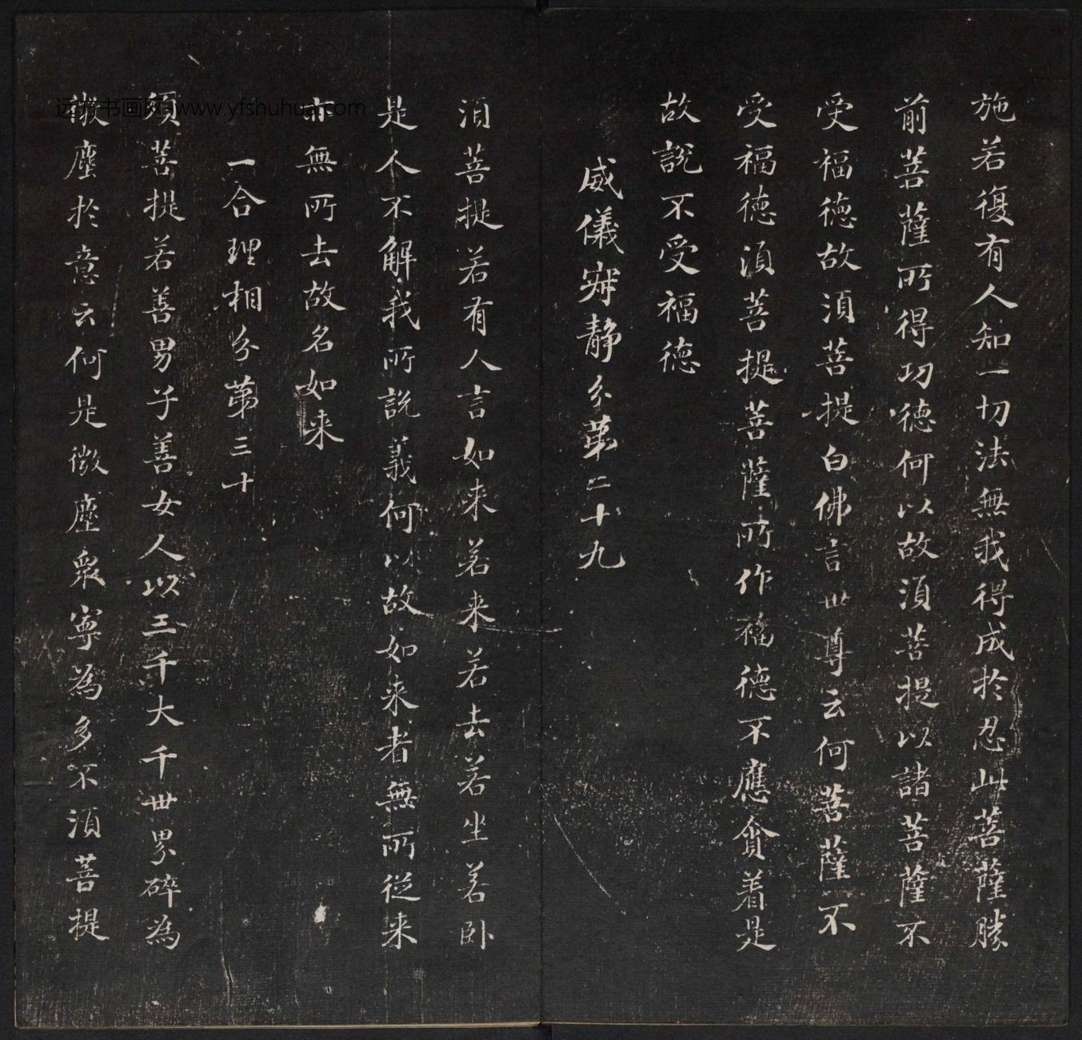 施若復有人知一切法無我得成於忍此菩薩勝
前菩薩所得功德何以故須菩提以諸菩薩不
受福德故須菩提白佛言世尊云何菩薩不
受福德須菩提菩薩所作福德不應貪着是
故說不受福德
威儀寂静分第二十九
須菩提若有人言如来若来若去若坐若卧
是人不解我所說義何以故如来者無所従来
亦無所去故名如来
一合理相分第三十
須菩提若善男子善女人以三千大千世界碎為
微塵於意云何是微塵衆寧為多不須菩提
远方书画网 www.yfshuhua.com